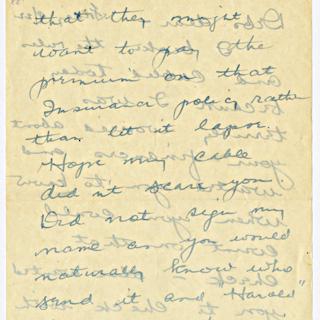 that they might
want to pay the
premium on that
Insurance policy rather
than let it lapse.
Hope my cable
did n't scare you
Did not sign my
name as you would
naturally know who
send it and "Harold"